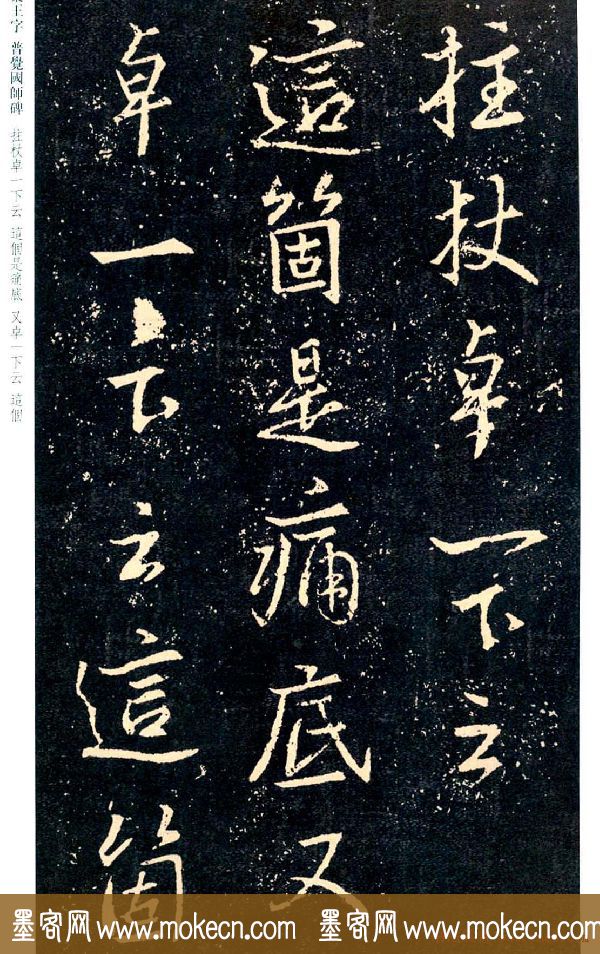 拄杖卓一下云
這箇是痛底又
卓一下云這箇
王字 普覺國師碑 拄杖卓一下云 這個是 底 又卓一下云 這個
墨客网 www.mokecn.com 墨客网 www.mokecn.com